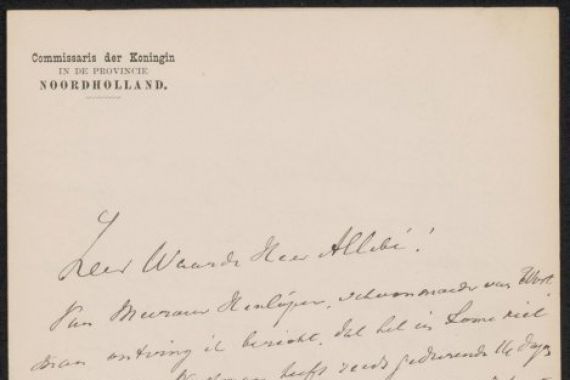 Commissaris der Koningin
IN DE PROVINCIE
NOORDHOLLAND.
Zeer Waarde Heer Allebé!
Van Mevrouw Henlüper, schoonmoeder van
ontving ik bericht, dat het in Rome niet
heeft reeds gedurende 14 dagen